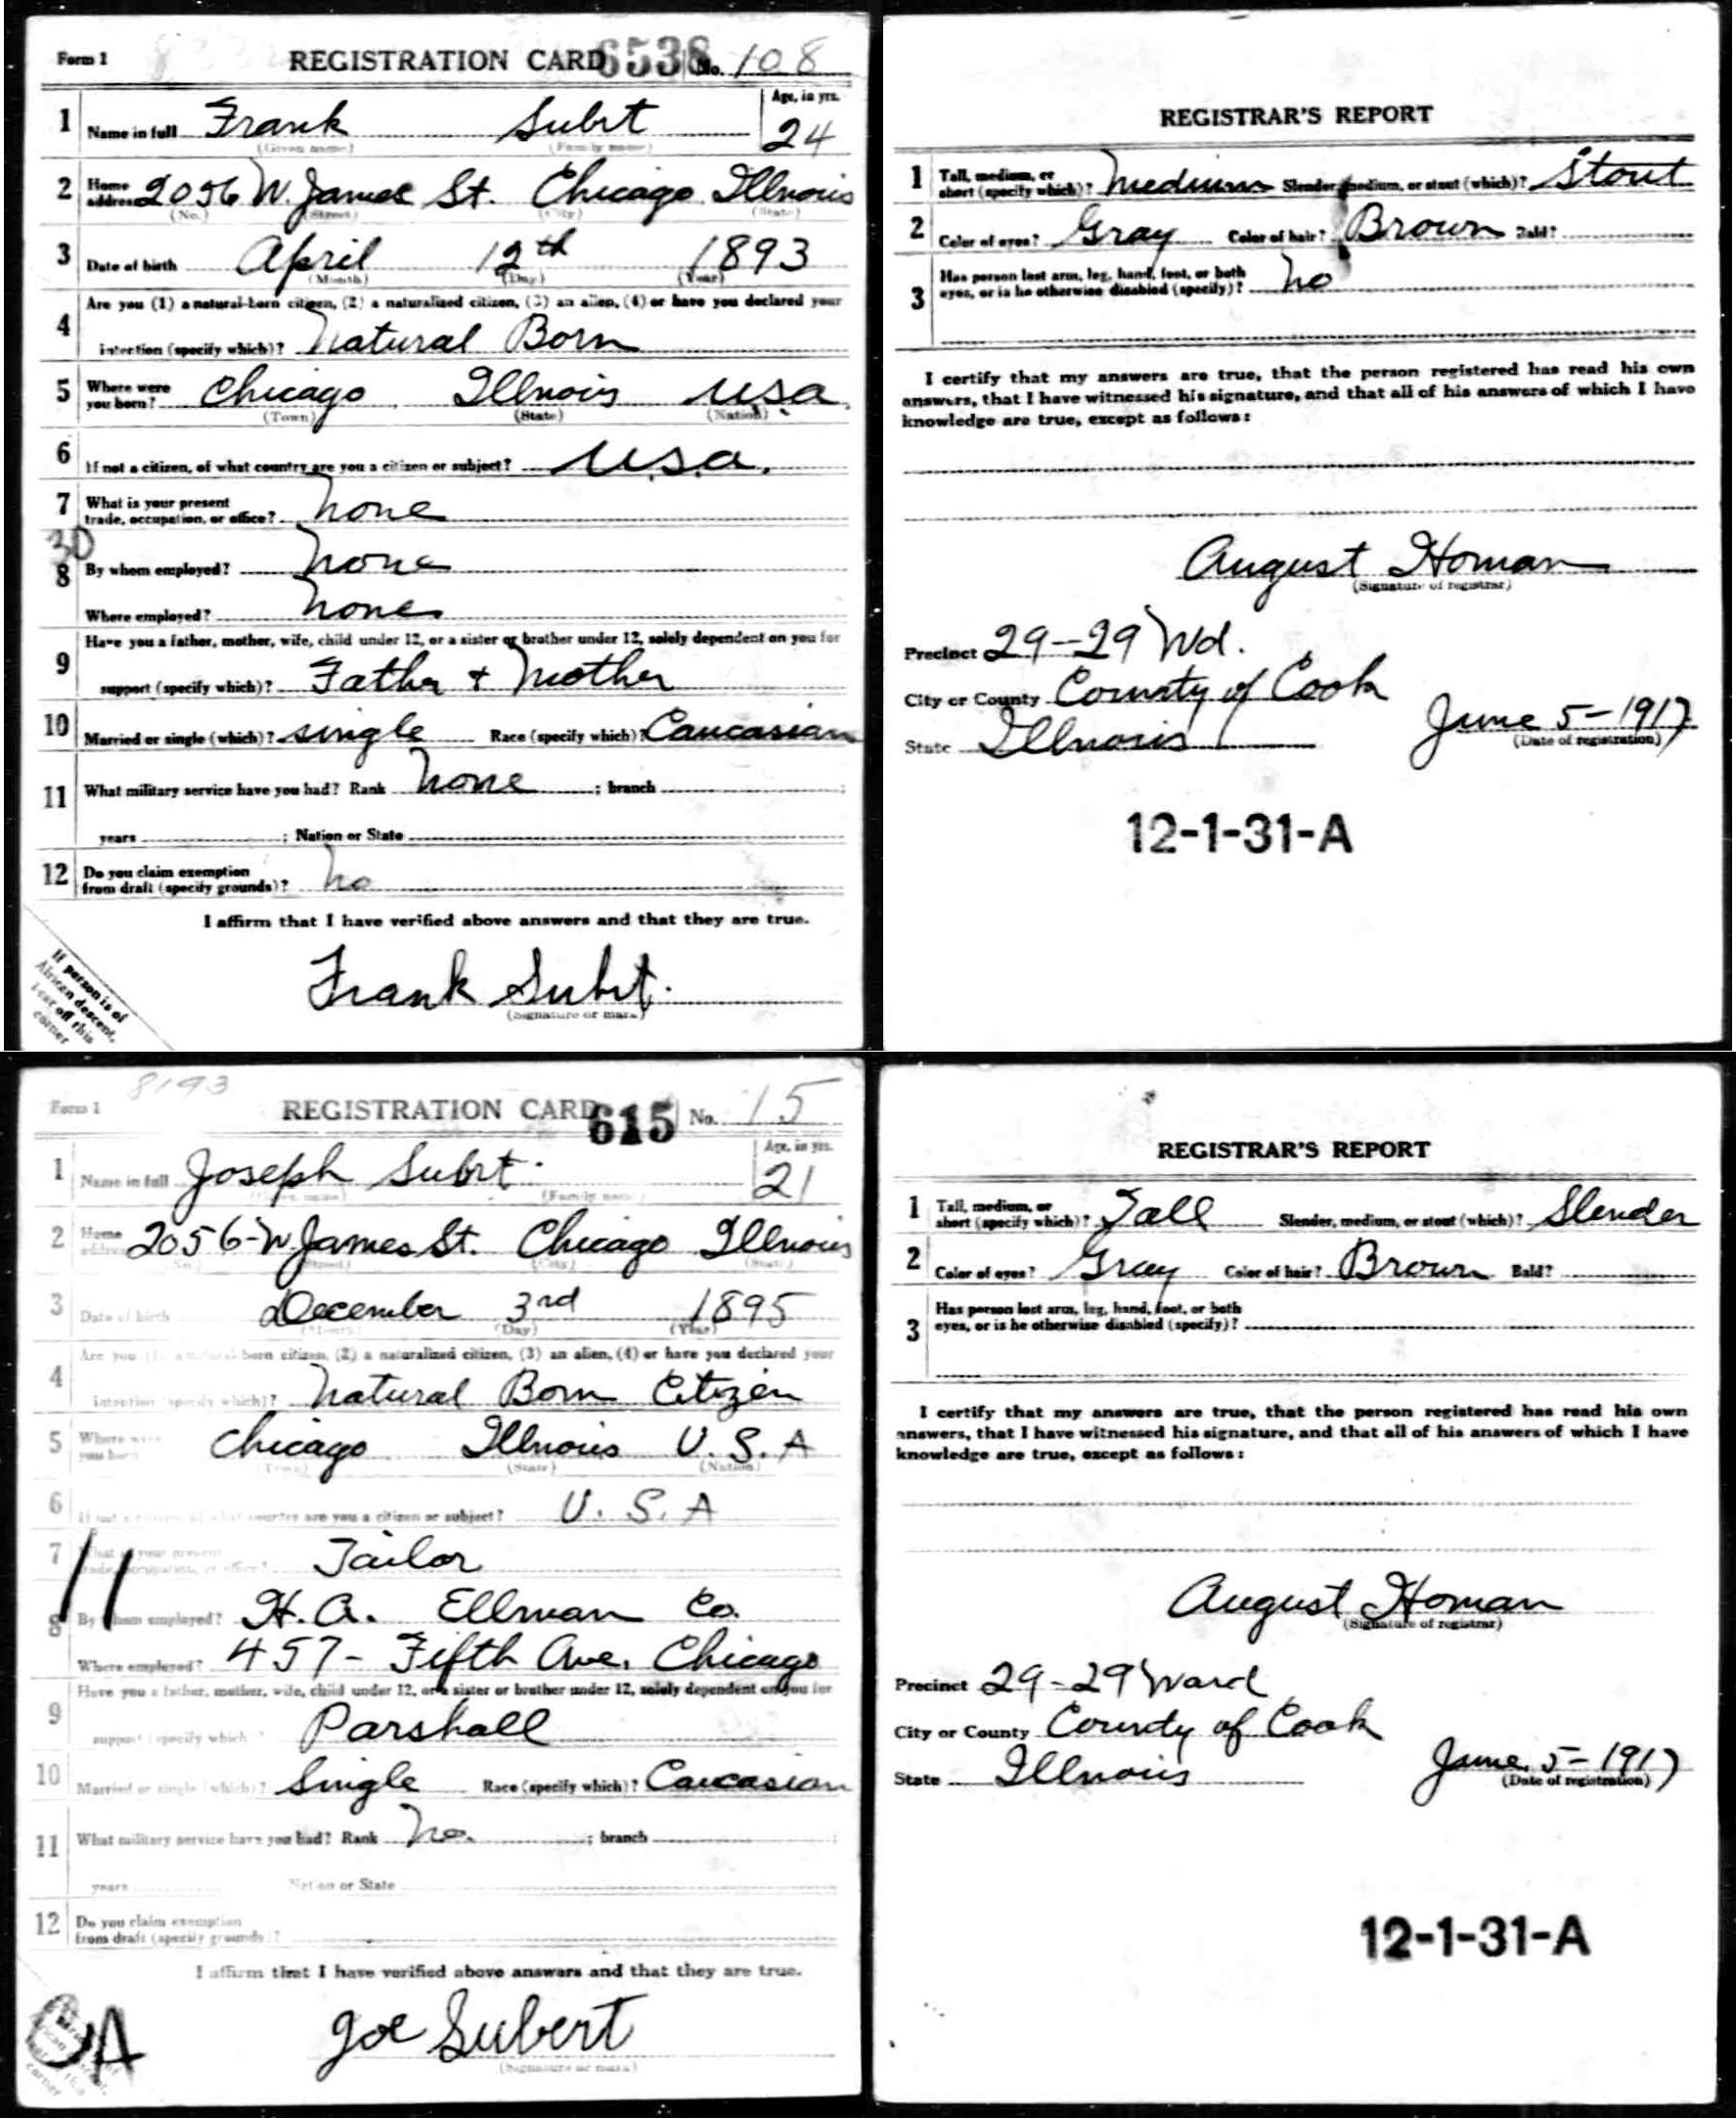 Form 1 REGISTRATION CARD 6538 No. 108
1 Name in full Frank Subrt Age, in yrs. 24
(Given name) (Family name)
2 Home address 2056 W. James St. Chicago Illnois
(No.) (Street) (City) (State)
3 Date of birth April 12th 1893
(Month) (Day) (Year)
4 Are you (1) a natural-born citizen, (2) a naturalized citizen, (3) an alien, (4) or have you declared your
intention (specify which)? Natural Born
5 Where were you born? Chicago Illnois USA
(Town) (State) (Nation)
6 If not a citizen, of what country are you a citizen or subject? U.S.A.
7 What is your present
trade, occupation, or office? None
30
8 By whom employed? None
Where employed? None
9 Have you a father, mother, wife, child under 12, or a sister or brother under 12, solely dependent on you for
support (specify which)? Father + Mother
10 Married or single (which)? Single Race (specify which)? Caucasian
11 What military service have you had? Rank None ; branch ;
years ; Nation or State
12 Do you claim exemption
from draft (specify grounds)? No
I affirm that I have verified above answers and that they are true.
Frank Subrt.
(Signature or mark)
If person is of
African descent,
tear off this
corner
REGISTRAR'S REPORT
1 Tall, medium, or
short (specify which)? Medium Slender, medium, or stout (which)? Stout
2 Color of eyes? Gray Color of hair? Brown Bald?
3 Has person lost arm, leg, hand, foot, or both
eyes, or is he otherwise disabled (specify)? No
I certify that my answers are true, that the person registered has read his own
answers, that I have witnessed his signature, and that all of his answers of which I have
knowledge are true, except as follows:
August Homan
(Signature of registrar)
Precinct 29-29 Wd.
City or County County of Cook
State Illnois June 5-1917
(Date of registration)
12-1-31-A
8193
Form 1 REGISTRATION CARD 615 No. 15
1 Name in full Joseph Subrt. Age, in yrs. 21
(Given name) (Family name)
2 Home address 2056-W. James St. Chicago Illnois
(No.) (Street) (City) (State)
3 Date of birth December 3rd 1895
(Month) (Day) (Year)
4 Are you (1) a natural-born citizen, (2) a naturalized citizen, (3) an alien, (4) or have you declared your
intention (specify which)? Natural Born Citizen
5 Where were you born? Chicago Illnois U.S.A
(Town) (State) (Nation)
6 If not a citizen, of what country are you a citizen or subject? U.S.A
7 What is your present
trade, occupation, or office? Tailor
11
8 By whom employed? H.A. Ellman Co.
Where employed? 457- Fifth Ave. Chicago
9 Have you a father, mother, wife, child under 12, or a sister or brother under 12, solely dependent on you for
support (specify which)? Parshall
10 Married or single (which)? Single Race (specify which)? Caucasian
11 What military service have you had? Rank No. ; branch ;
years Nation or State
12 Do you claim exemption
from draft (specify grounds)?
I affirm that I have verified above answers and that they are true.
Joe Subert
(Signature or mark)
corner
REGISTRAR'S REPORT
1 Tall, medium, or
short (specify which)? Tall Slender, medium, or stout (which)? Slender
2 Color of eyes? Gray Color of hair? Brown Bald?
3 Has person lost arm, leg, hand, foot, or both
eyes, or is he otherwise disabled (specify)?
I certify that my answers are true, that the person registered has read his own
answers, that I have witnessed his signature, and that all of his answers of which I have
knowledge are true, except as follows:
August Homan
(Signature of registrar)
Precinct 29-29 Ward
City or County County of Cook
State Illnois June 5-1917
(Date of registration)
12-1-31-A